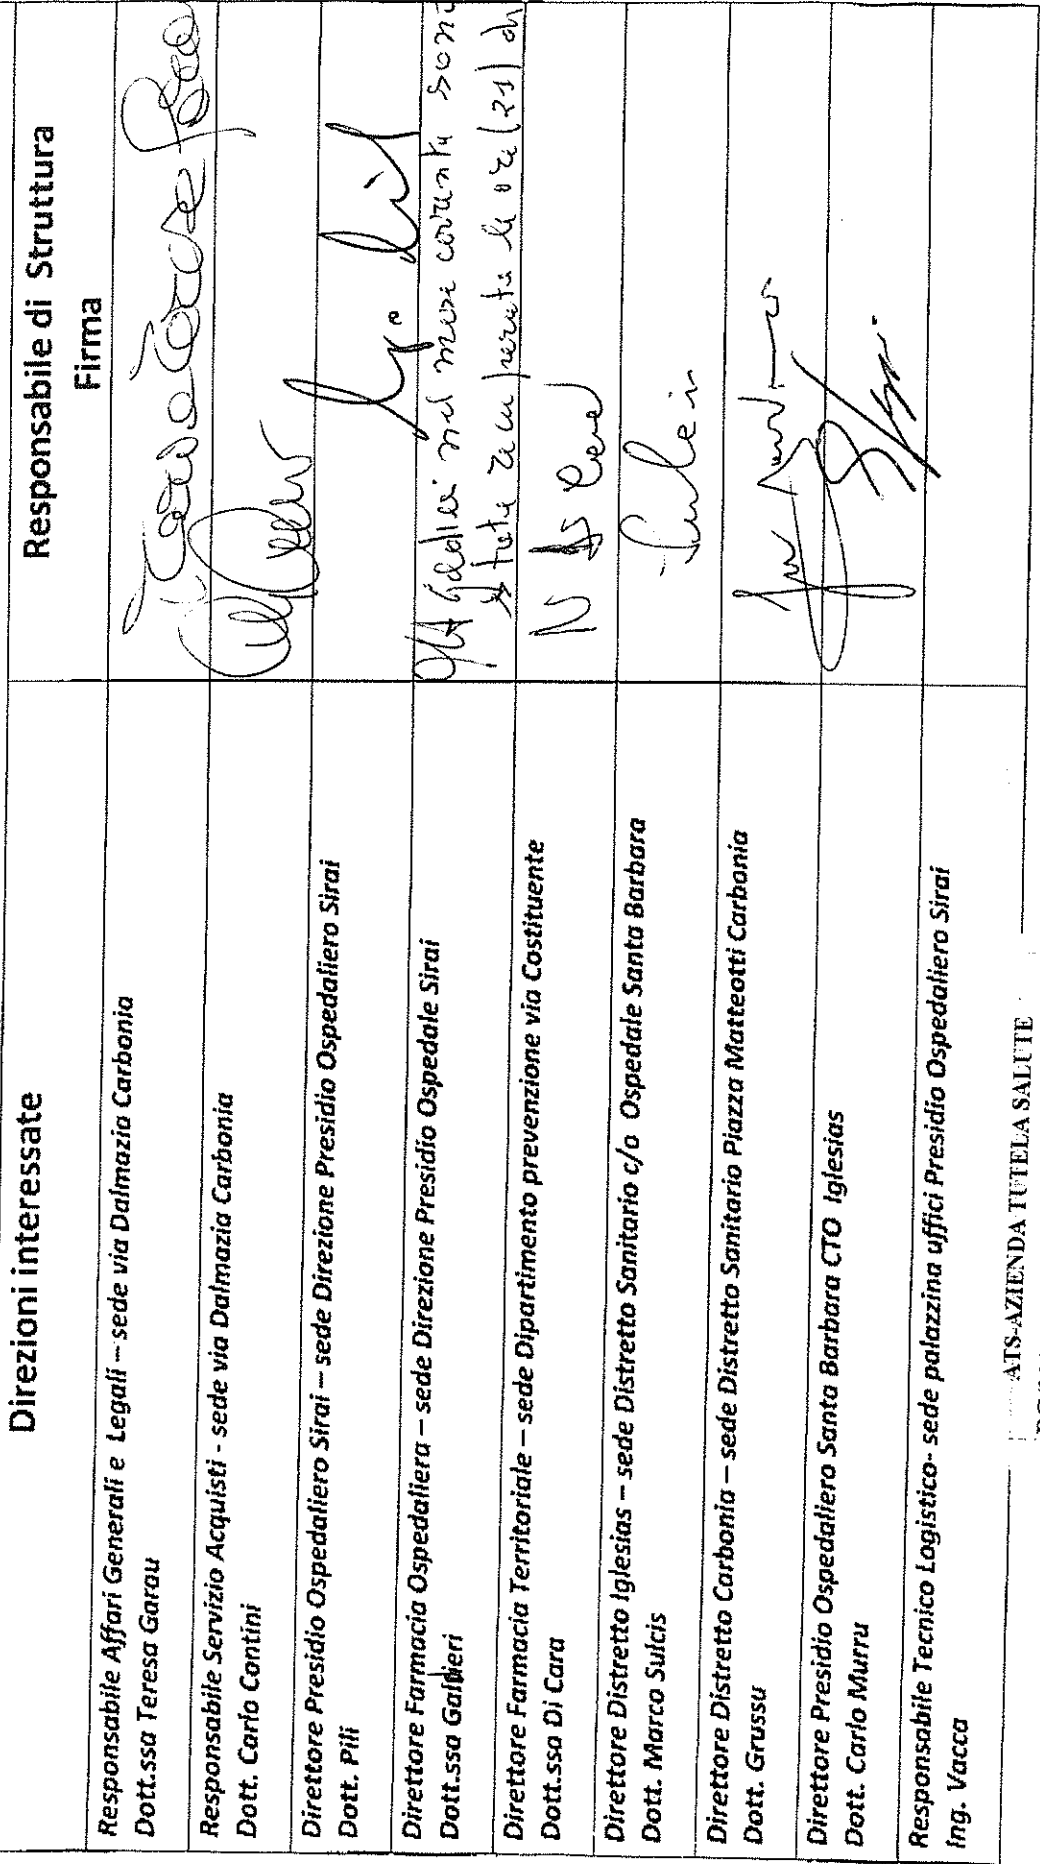 Direzioni interessate
Responsabile di Struttura
Firma
Responsabile Affari Generali e Legali – sede via Dalmazia Carbonia
Dott.ssa Teresa Garau
Responsabile Servizio Acquisti - sede via Dalmazia Carbonia
Dott. Carlo Contini
Direttore Presidio Ospedaliero Sirai – sede Direzione Presidio Ospedaliero Sirai
Dott. Pili
Direttore Farmacia Ospedaliera – sede Direzione Presidio Ospedale Sirai
Dott.ssa
nel mese corrente sono
state le ore (21) di
Direttore Farmacia Territoriale – sede Dipartimento prevenzione via Costituente
Dott.ssa Di Cara
Direttore Distretto Iglesias – sede Distretto Sanitario c/o Ospedale Santa Barbara
Dott. Marco Sulcis
Direttore Distretto Carbonia – sede Distretto Sanitario Piazza Matteotti Carbonia
Dott. Grussu
Direttore Presidio Ospedaliero Santa Barbara CTO Iglesias
Dott. Carlo Murru
Responsabile Tecnico Logistico- sede palazzina uffici Presidio Ospedaliero Sirai
Ing. Vacca
ATS-AZIENDA TUTELA SALUTE